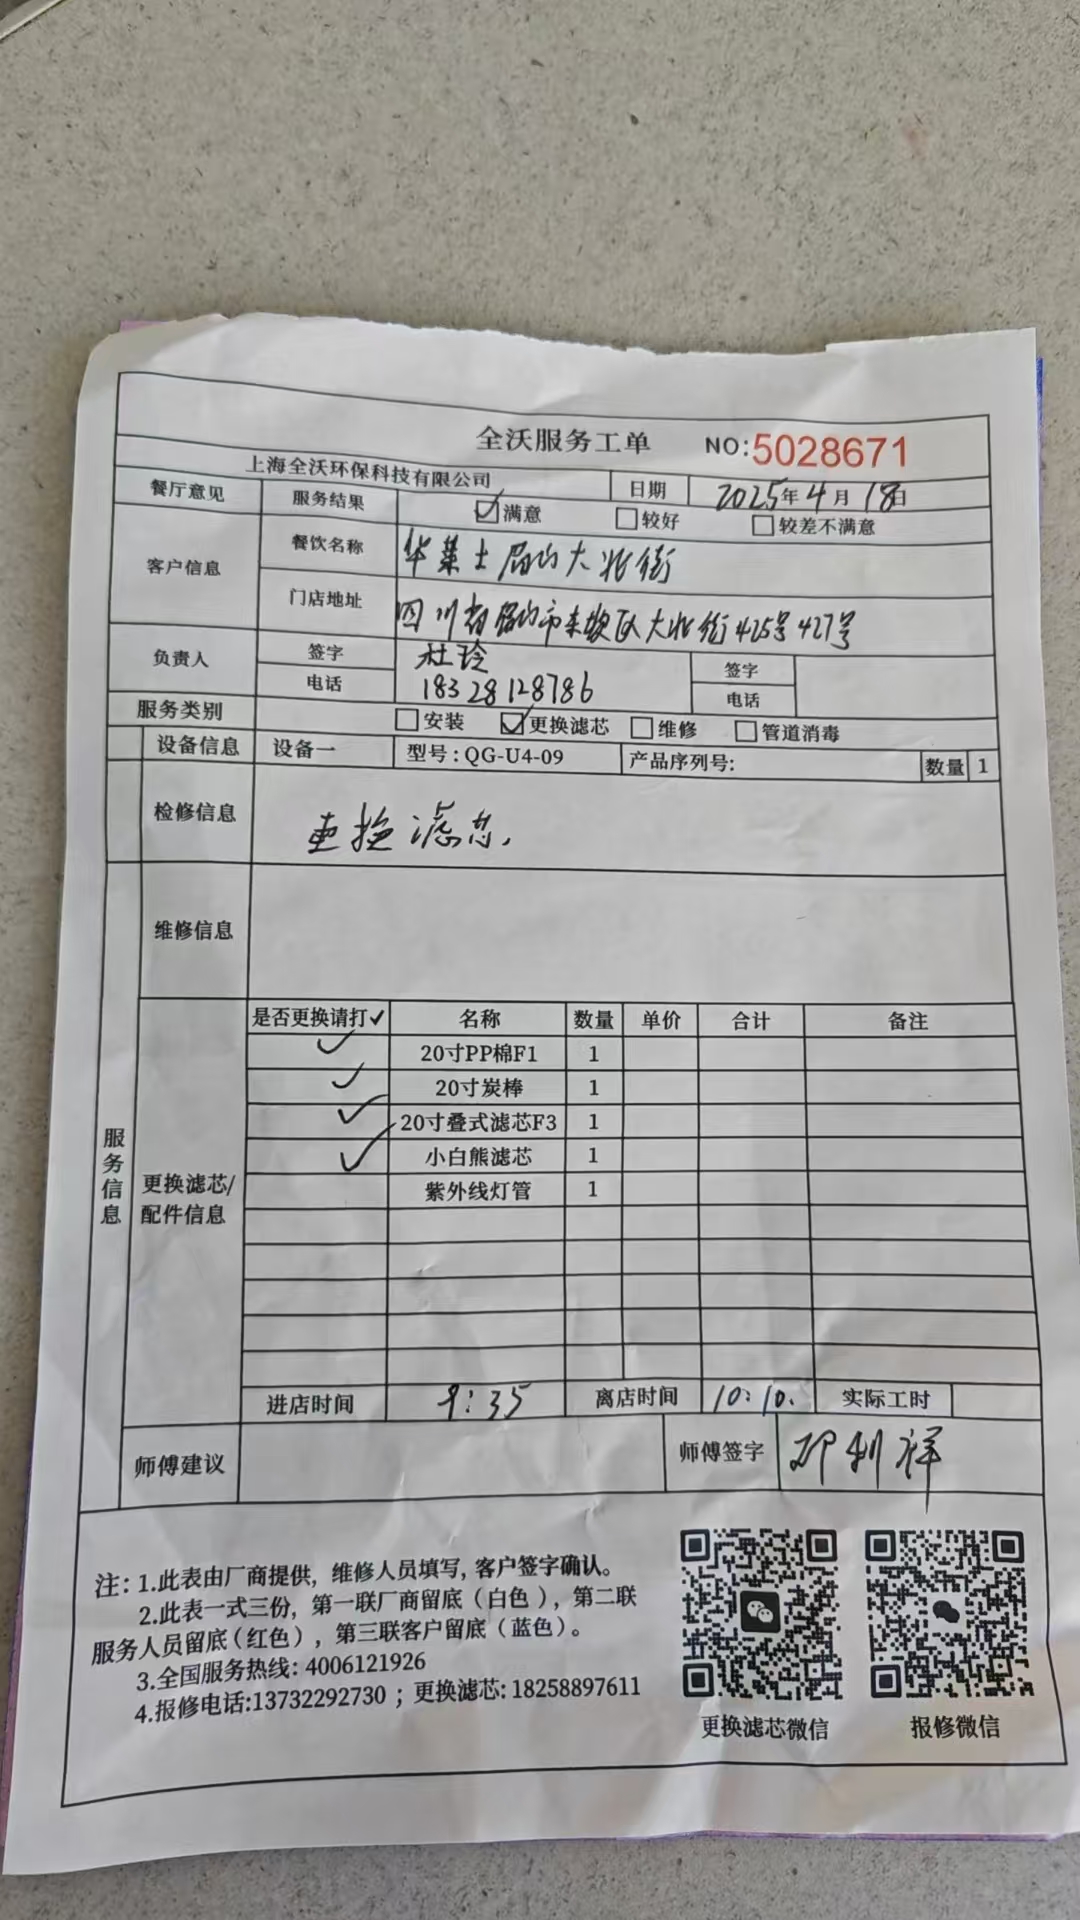 全沃服务工单 NO:5028671
上海全沃环保科技有限公司 日期 2025年4月18日
餐厅意见 服务结果 ☑满意 ☐较好 ☐较差不满意
客户信息 餐饮名称 华莱士眉山大北街
门店地址 四川省眉山市东坡区大北街425号427号
负责人 签字 杜玲 签字
电话 18328128786 电话
服务类别 ☐安装 ☑更换滤芯 ☐维修 ☐管道消毒
设备信息 设备一 型号:QG-U4-09 产品序列号: 数量 1
检修信息 更换滤芯.
维修信息
服务信息
更换滤芯/配件信息
是否更换请打✓ 名称 数量 单价 合计 备注
✓ 20寸PP棉F1 1
✓ 20寸炭棒 1
✓ 20寸叠式滤芯F3 1
✓ 小白熊滤芯 1
紫外线灯管 1
进店时间 9:35 离店时间 10:10. 实际工时
师傅建议 师傅签字 利祥
注: 1.此表由厂商提供, 维修人员填写, 客户签字确认。
2.此表一式三份, 第一联厂商留底（白色）, 第二联
服务人员留底（红色）, 第三联客户留底（蓝色）。
3.全国服务热线: 4006121926
4.报修电话:13732292730 ; 更换滤芯: 18258897611
更换滤芯微信 报修微信